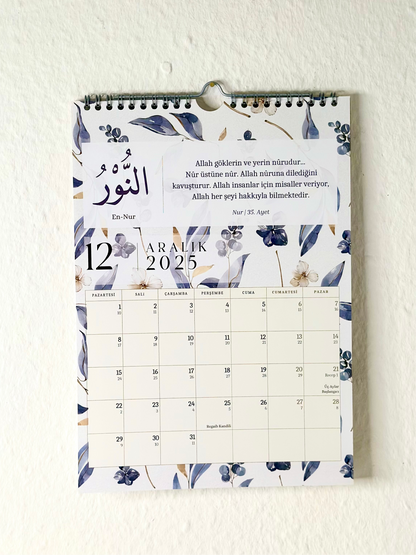 النُّوْرُ
En-Nur
Allah göklerin ve yerin nûrudur...
Nûr üstüne nûr. Allah nûruna dilediğini
kavuşturur. Allah insanlar için misaller veriyor,
Allah her şeyi hakkıyla bilmektedir.
Nur | 35. Ayet
12
ARALIK
2025
PAZARTESİ SALI ÇARŞAMBA PERŞEMBE CUMA CUMARTESİ PAZAR
1 2 3 4 5 6 7
10 11 12 13 14 15 16
8 9 10 11 12 13 14
17 18 19 20 21 22 23
15 16 17 18 19 20 21
24 25 26 27 28 29 Receb 1
Üç Aylar
Başlangıcı
22 23 24 25 26 27 28
2 3 4 5 6 7 8
Regaib Kandili
29 30 31
9 10 11